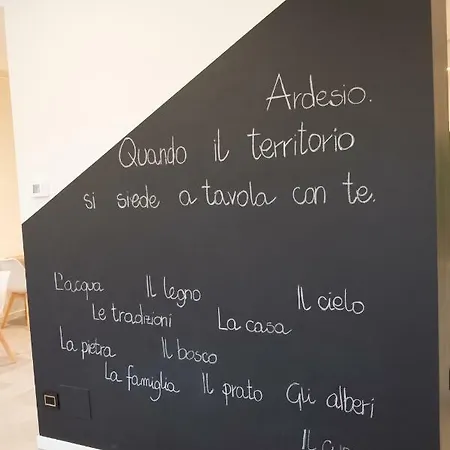 Ardesio.
Quando il territorio
si siede a tavola con te.
L'acqua Il legno Il cielo
Le tradizioni La casa
La pietra Il bosco
La famiglia Il prato Gli alberi
Il